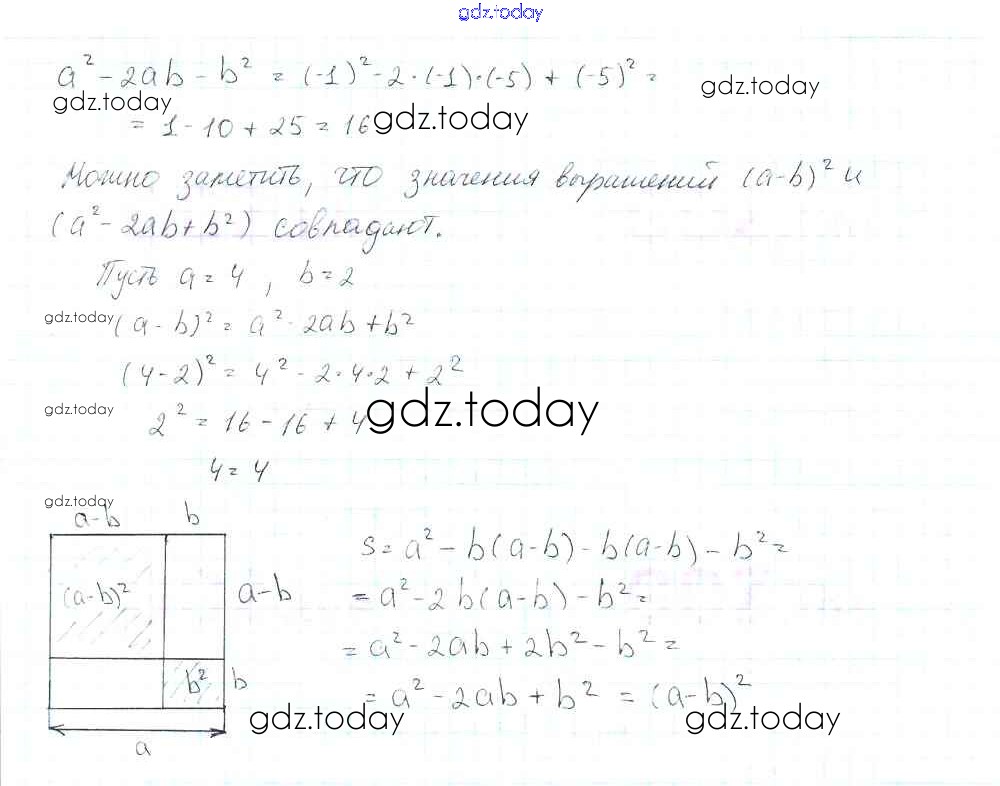 gdz.today
a² - 2ab - b² = (-1)² - 2·(-1)·(-5) + (-5)² =
gdz.today gdz.today
= 1 - 10 + 25 = 16 gdz.today
Можно заметить, что значения выражений (a-b)² и
(a² - 2ab + b²) совпадают.
Пусть a = 4, b = 2
gdz.today (a - b)² = a² - 2ab + b²
(4-2)² = 4² - 2·4·2 + 2²
gdz.today 2² = 16 - 16 + 4 gdz.today
4 = 4
gdz.today
a-b b
S = a² - b(a-b) - b(a-b) - b² =
(a-b)² a-b = a² - 2b(a-b) - b² =
= a² - 2ab + 2b² - b² =
b² b = a² - 2ab + b² = (a-b)²
gdz.today gdz.today
a